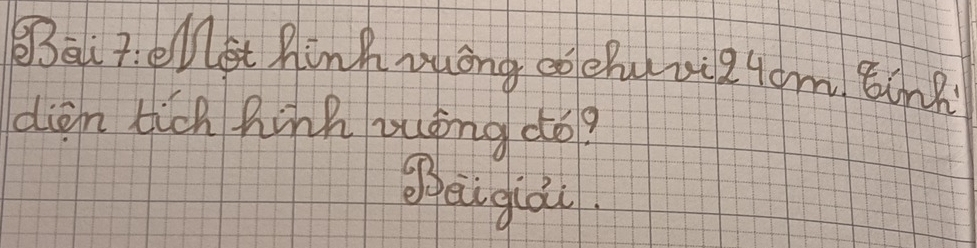 Bài 7: Một hình vuông có chu vi 24cm. Tính
diện tích hình vuông đó?
Bài giải.